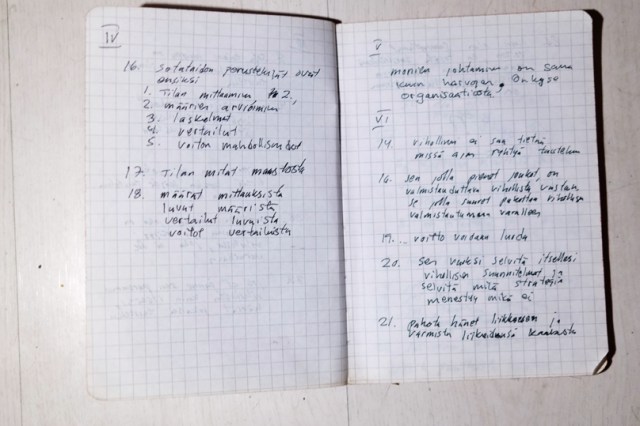 IV
16. Sotataidon perustekijät ovat
ensiksi
1. Tilan mittaaminen 2,
2. määrien arvioiminen
3. laskelmat
4. vertailut
5. voiton mahdollisuudet
17. Tilan mitat maastosta
18. määrät mittauksista
luvut määristä
vertailut luvuista
voitot vertailuista
V
monien johtaminen on sama
kuin harvojen. On kyse
organisaatiosta
VI
14. vihollinen ei saa tietää
missä ajon taistelun
16. sen jolla pienet joukot, on
valmistauduttava vihollista vastaan
se jolla suuret pakottaa vihollisen
valmistautumaan varalleen
19. .. voitto voidaan luoda
20. sen vuoksi selvitä itsellesi
vihollisen suunnitelmat ja
selvitä mikä strategia
menestyy mikä ei
21. pakota hänet liikkeeseen ja
varmista